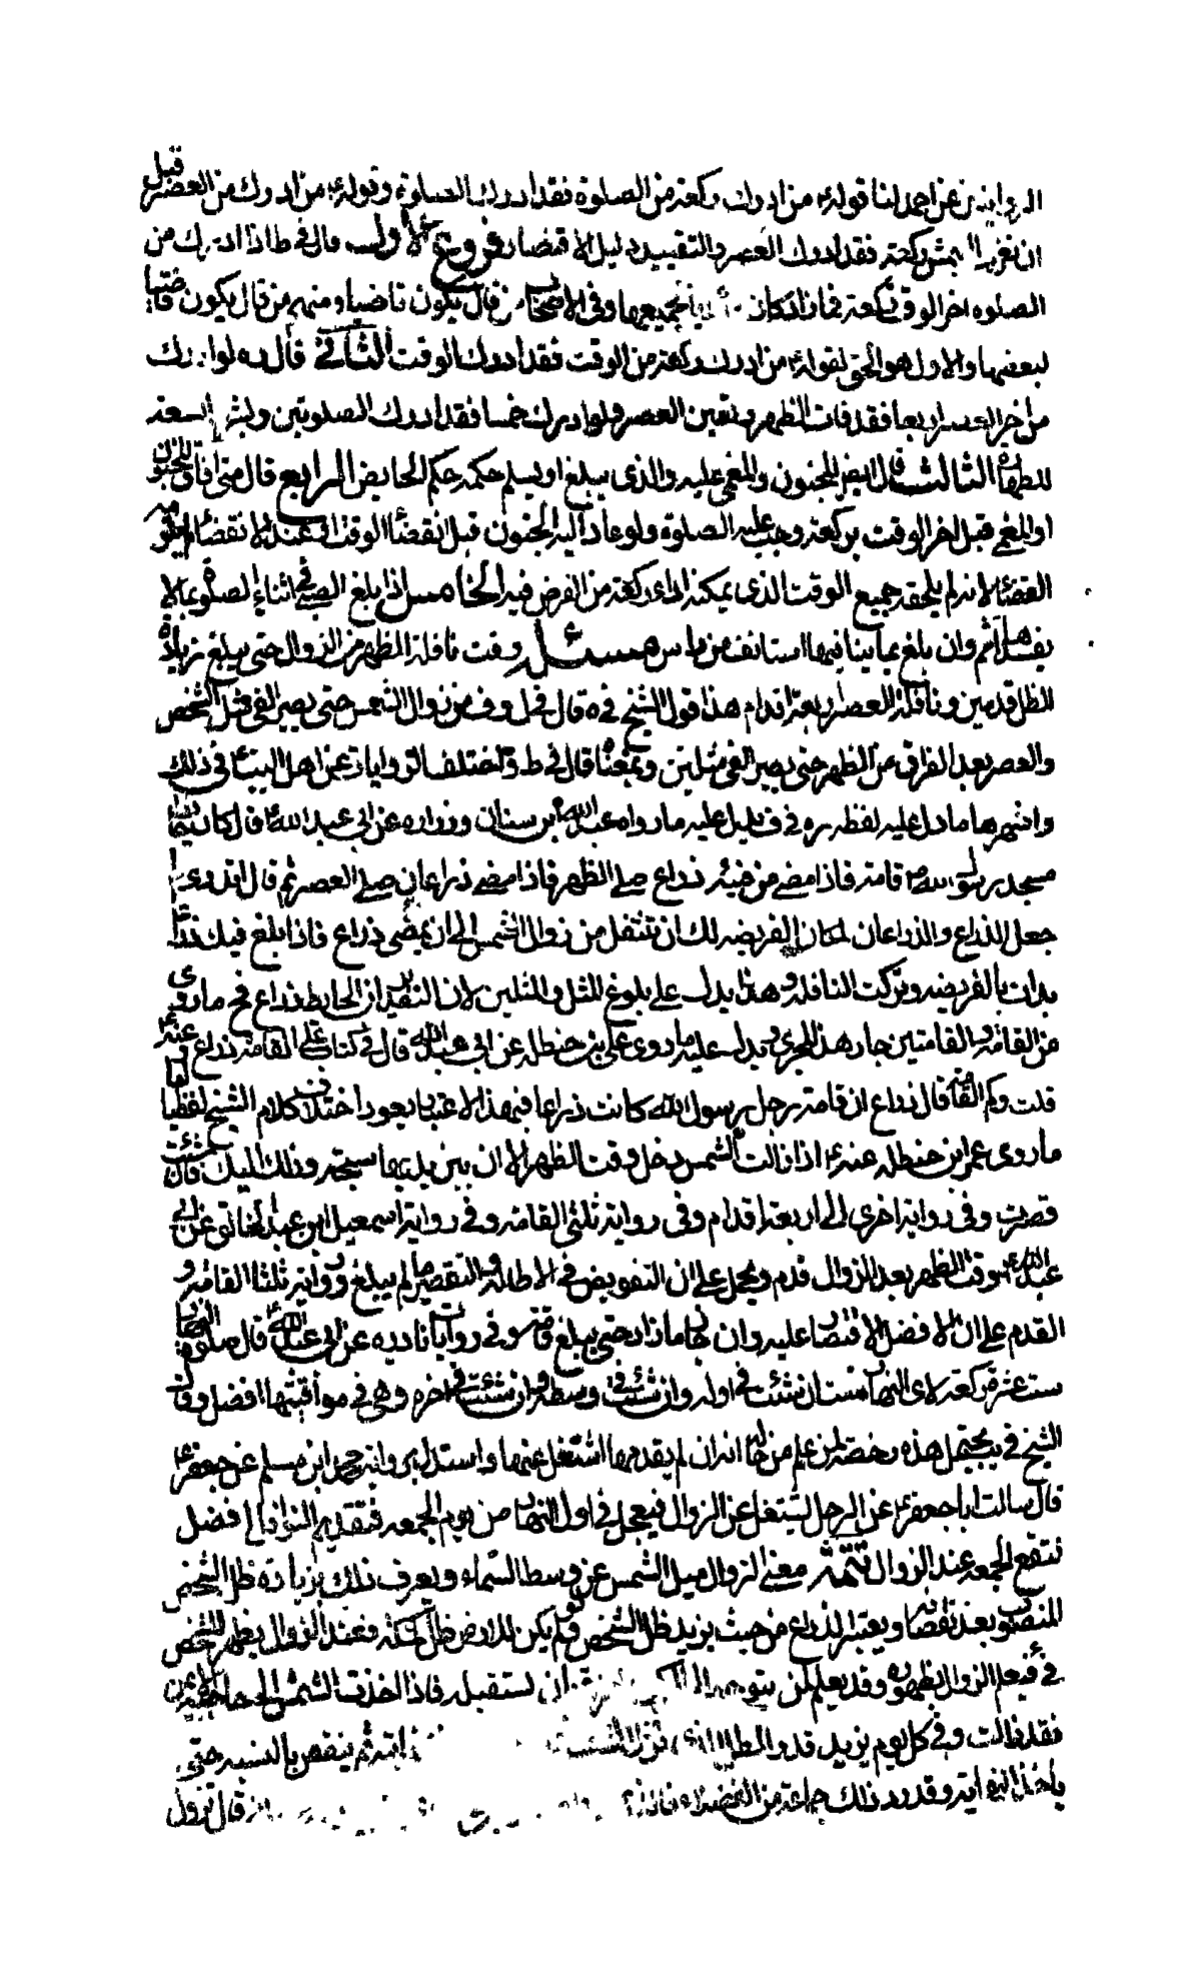 الروايتين عن احمد لنا قوله ع من ادرك ركعة من الصلوة فقد ادرك الصلوة وقوله ع من ادرك من العصر قبل
ان تغرب الشمس ركعة فقد ادرك العصر والتقييد دليل الاقتضار فروع الاول قال في ط اذا ادرك من
الصلوه اخر الوقت ركعة فماذا كان مؤديا لجميعها وفى الاصحاب من قال يكون قاضيا ومنهم من قال يكون قاضيا
لبعضها والاول هو الحق لقوله ع من ادرك ركعة من الوقت فقد ادرك الوقت الثاني قال ره لو ادرك
من اخر العصر اربعا فقد فات الظهر وتعين العصر ولو ادرك خمسا فقد ادرك الصلوتين ولشرط السعة
للطهارة الثالث قال ايض المجنون والمغمى عليه والذى يبلغ او يسلم حكمه حكم الحايض الرابع قال متى افاق المجنون
او المغمى قبل اخر الوقت بركعة وجبت عليه الصلوة ولو عاد اليه الجنون قبل انقضاء الوقت او عند الانقضاء لم يلزمه
القضاء لانه لم يلحقه جميع الوقت الذى يمكنه اداء ركعة من الفرض فيه الخامس اذا بلغ الصبي في اثناء الصلوة بما لا
يفسدها اتم وان بلغ بما ينافيها استانف من راس مسئلة وقت نافلة الظهر من الزوال حتى يبلغ زيادة
الظل قدمين ونافلة العصر اربعة اقدام هذا قول الشيخ في ه قال في ل وف من زوال الشمس حتى يصير الفئ مثل الشخص
والعصر بعد الفراق من الظهر حتى يصير الفئ مثلين وبمعناه قال في ط وقد اختلف الروايات عن اهل البيت ع في ذلك
واشهرها ما دل عليه لفظه ره في ف يدل عليه ما رواه عبد الله ابن سنان وزراره عن ابي عبد الله ع قال كان حائط
مسجد رسول الله ص قامة فاذا مضى من فيئه ذراع صلى الظهر فاذا مضى ذراعان صلى العصر ثم قال اتدرى لم
جعل الذراع والذراعان لمكان الفريضه لك ان تتنفل من زوال الشمس الى ان يمضى ذراع فاذا بلغ فيئك ذراعا
بدات بالفريضه وتركت النافله وهذا يدل على بلوغ المثل والمثلين لان التقدير ان الحايط ذراع فح ما روى
من القامة والقامتين جار هذا المجرى ويدل عليه ما روى على بن حنظله عن ابى عبد الله ع قال في كتاب على ع القامة ذراع وعنه ع
قلت وكم القامة قال ذراع ان قامة رحل رسول الله ص كانت ذراعا فبهذا الاعتبار يعود اختلاف كلام الشيخ لفظيا اما
ما روى عمر ابن حنظله عنه ع اذا زالت الشمس دخل وقت الظهر الا ان بين يديها سبحة وذلك اليك فان شئت
قصرت وفى رواية اخرى الى اربعة اقدام وفى رواية ثلثى القامة وفى رواية اسمعيل ابن عبد الخالق عن ابي
عبد الله ع وقت الظهر بعد الزوال قدم ويحمل على ان التفويض في الاطالة والتقصير ما لم يبلغ ورواية ثلثا القامة و
القدم على ان الافضل الاقتصار عليه وان جاز ما زاد حتى يبلغ قامة وفى روايات نادره عن ابي عبد الله ع قال صلوة النهار
ست عشر ركعة لاى النهار شئت ان شئت في اوله وان شئت في وسطه وان شئت في اخره وهى في مواقيتها افضل وقال
الشيخ في يب يحتمل هذه رخصة لمن علم من حاله انه ان لم يقدمها اشتغل عنها واستدل برواية محمد ابن مسلم عن جعفر ع
قال سالت ابا جعفر ع عن الرجل يشتغل عن الزوال فيعجل في اول النهار من يوم الجمعه فتقديم النوافل افضل
لتقع الجمعه عند الزوال تتمة معنى الزوال ميل الشمس عن وسط السماء ويعرف ذلك بزيادة ظل الشخص
المنصوب بعد نقصانه ويعتبر الذراع من حيث يزيد ظل الشخص ولو لم يكن للارض ظل كمكة فعند الزوال يظهر للشخص
فئ فيعلم الزوال بظهوره وقد يعلم لمن يتوجه الى ان يستقبله فاذا اخذت الشمس الى حاجبه الايمن
فقد زالت وفى كل يوم يزيد قدر الظل ثم ينقص بالنسبه حتى
ياخذ وقد ورد ذلك جماعة من الفضلاء قال تزول